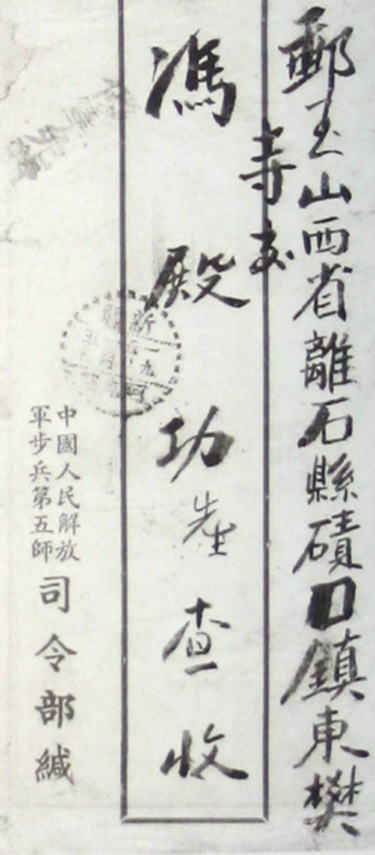 郵至山西省離石縣磧口鎮東樊
寺交
馮殿功先生查收
中國人民解放
軍步兵第五師
司令部緘